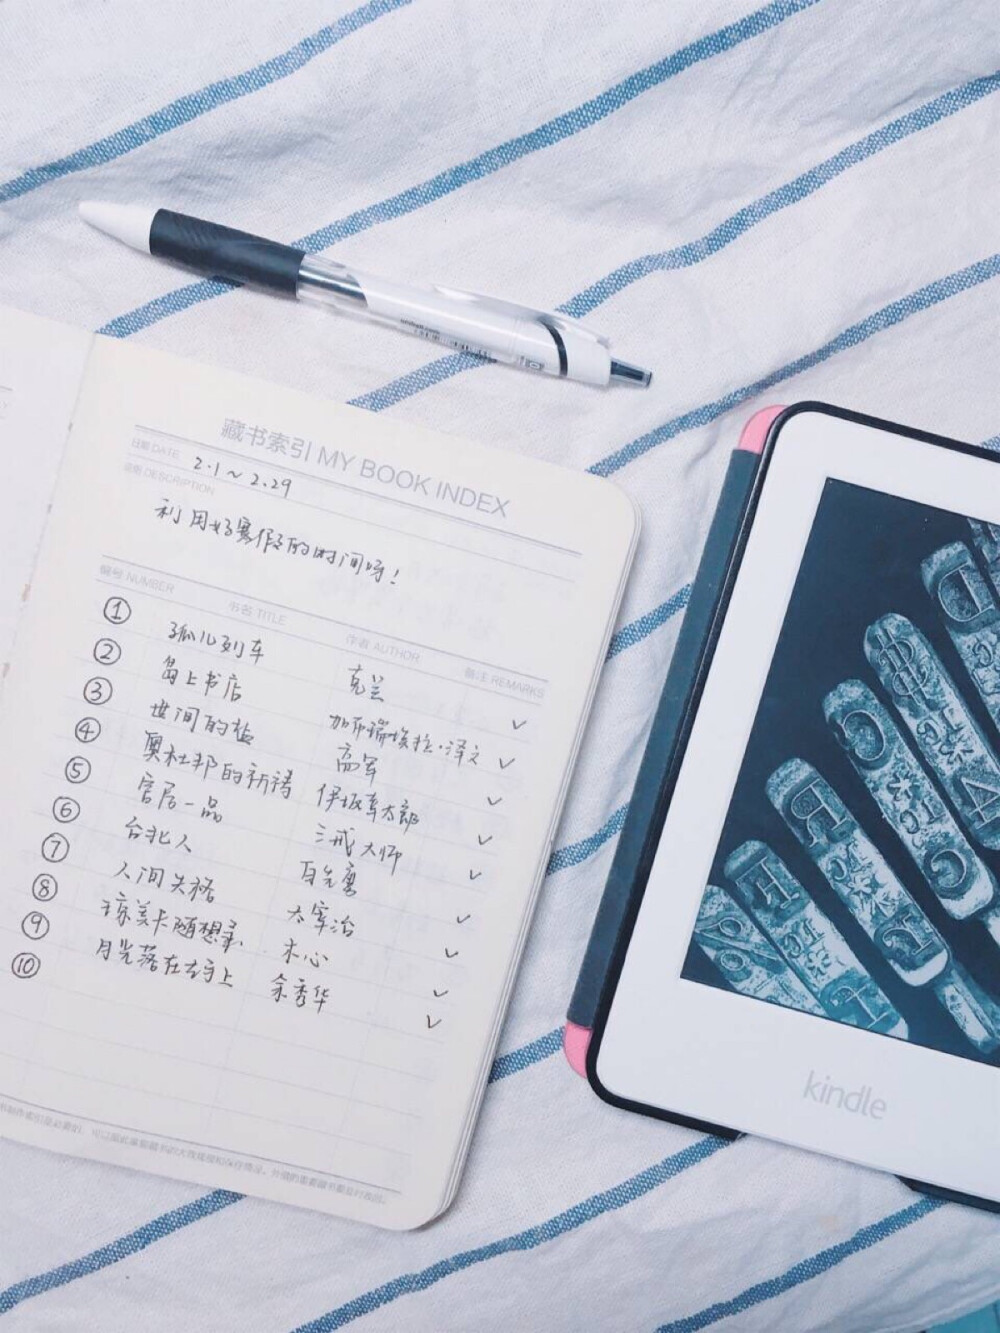 藏书索引 MY BOOK INDEX
日期 DATE 2.1~2.29
说明 DESCRIPTION
利用好寒假的时间呀!
编号 NUMBER 书名 TITLE 作者 AUTHOR 备注 REMARKS
① 孤儿列车 克兰 ✓
② 岛上书店 加布瑞埃拉·泽文 ✓
③ 世间的盐 高军 ✓
④ 奥杜邦的祈祷 伊坂幸太郎 ✓
⑤ 官居一品 三戒大师 ✓
⑥ 台北人 白先勇 ✓
⑦ 人间失格 太宰治 ✓
⑧ 琼美卡随想录 木心 ✓
⑨ 月光落在左手上 余秀华 ✓
⑩
kindle